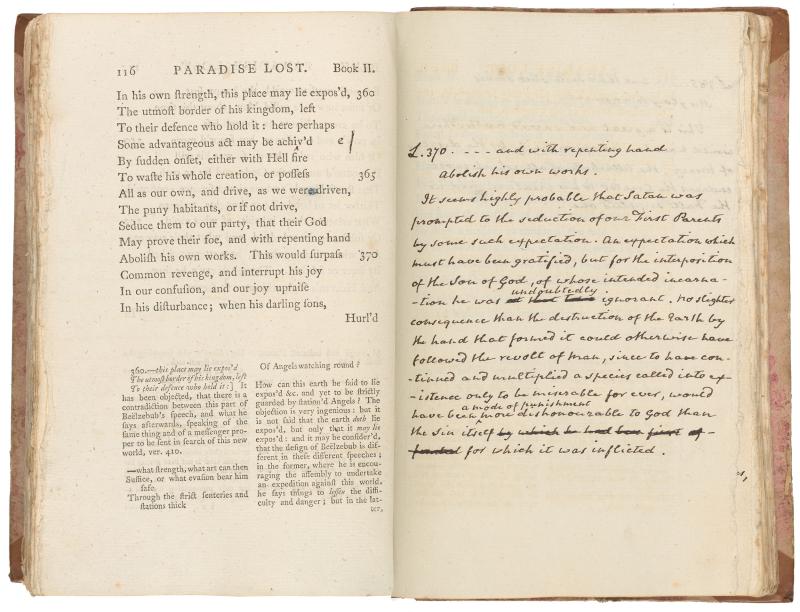 116 PARADISE LOST. Book II.
In his own ſtrength, this place may lie expos'd, 360
The utmoſt border of his kingdom, left
To their defence who hold it: here perhaps
Some advantageous act may be achiv'd e/
By ſudden onſet, either with Hell fire
To waſte his whole creation, or poſſeſs 365
All as our own, and drive, as we were driven,
The puny habitants, or if not drive,
Seduce them to our party, that their God
May prove their foe, and with repenting hand
Aboliſh his own works. This would ſurpaſs 370
Common revenge, and interrupt his joy
In our confuſion, and our joy upraiſe
In his diſturbance; when his darling ſons,
Hurl'd
360.—this place may lie expos'd
The utmoſt border of his kingdom, left
To their defence who hold it:] It
has been objected, that there is a
contradiction between this part of
Beëlzebub's ſpeech, and what he
ſays afterwards, ſpeaking of the
ſame thing and of a meſſenger pro-
per to be ſent in ſearch of this new
world, ver. 410.
—what ſtrength, what art can then
Suffice, or what evaſion bear him
ſafe
Through the ſtrict ſenteries and
ſtations thick
Of Angels watching round?
How can this earth be ſaid to lie
expos'd &c. and yet to be ſtrictly
guarded by ſtation'd Angels? The
objection is very ingenious: but it
is not ſaid that the earth doth lie
expos'd, but only that it may lie
expos'd: and it may be conſider'd,
that the deſign of Beëlzebub is dif-
ferent in theſe different ſpeeches;
in the former, where he is encou-
raging the aſſembly to undertake
an expedition againſt this world,
he ſays things to leſſen the diffi-
culty and danger; but in the lat-
ter,
L. 370. - - - - and with repenting hand
Abolish his own works.
It seems highly probable that Satan was
prompted to the seduction of our First Parents
by some such expectation. An expectation which
must have been gratified, but for the interposition
of the Son of God, of whose intended incarna-
undoubtedly
-tion he was at that time ignorant. No slighter
consequence than the destruction of the Earth by
the hand that formed it could otherwise have
followed the revolt of man, since to have con-
-tinued and multiplied a species called into ex-
-istence only to be miserable for ever, would
a mode of punishment
have been more dishonourable to God than
the sin itself by which he had been first of-
-fended for which it was inflicted.